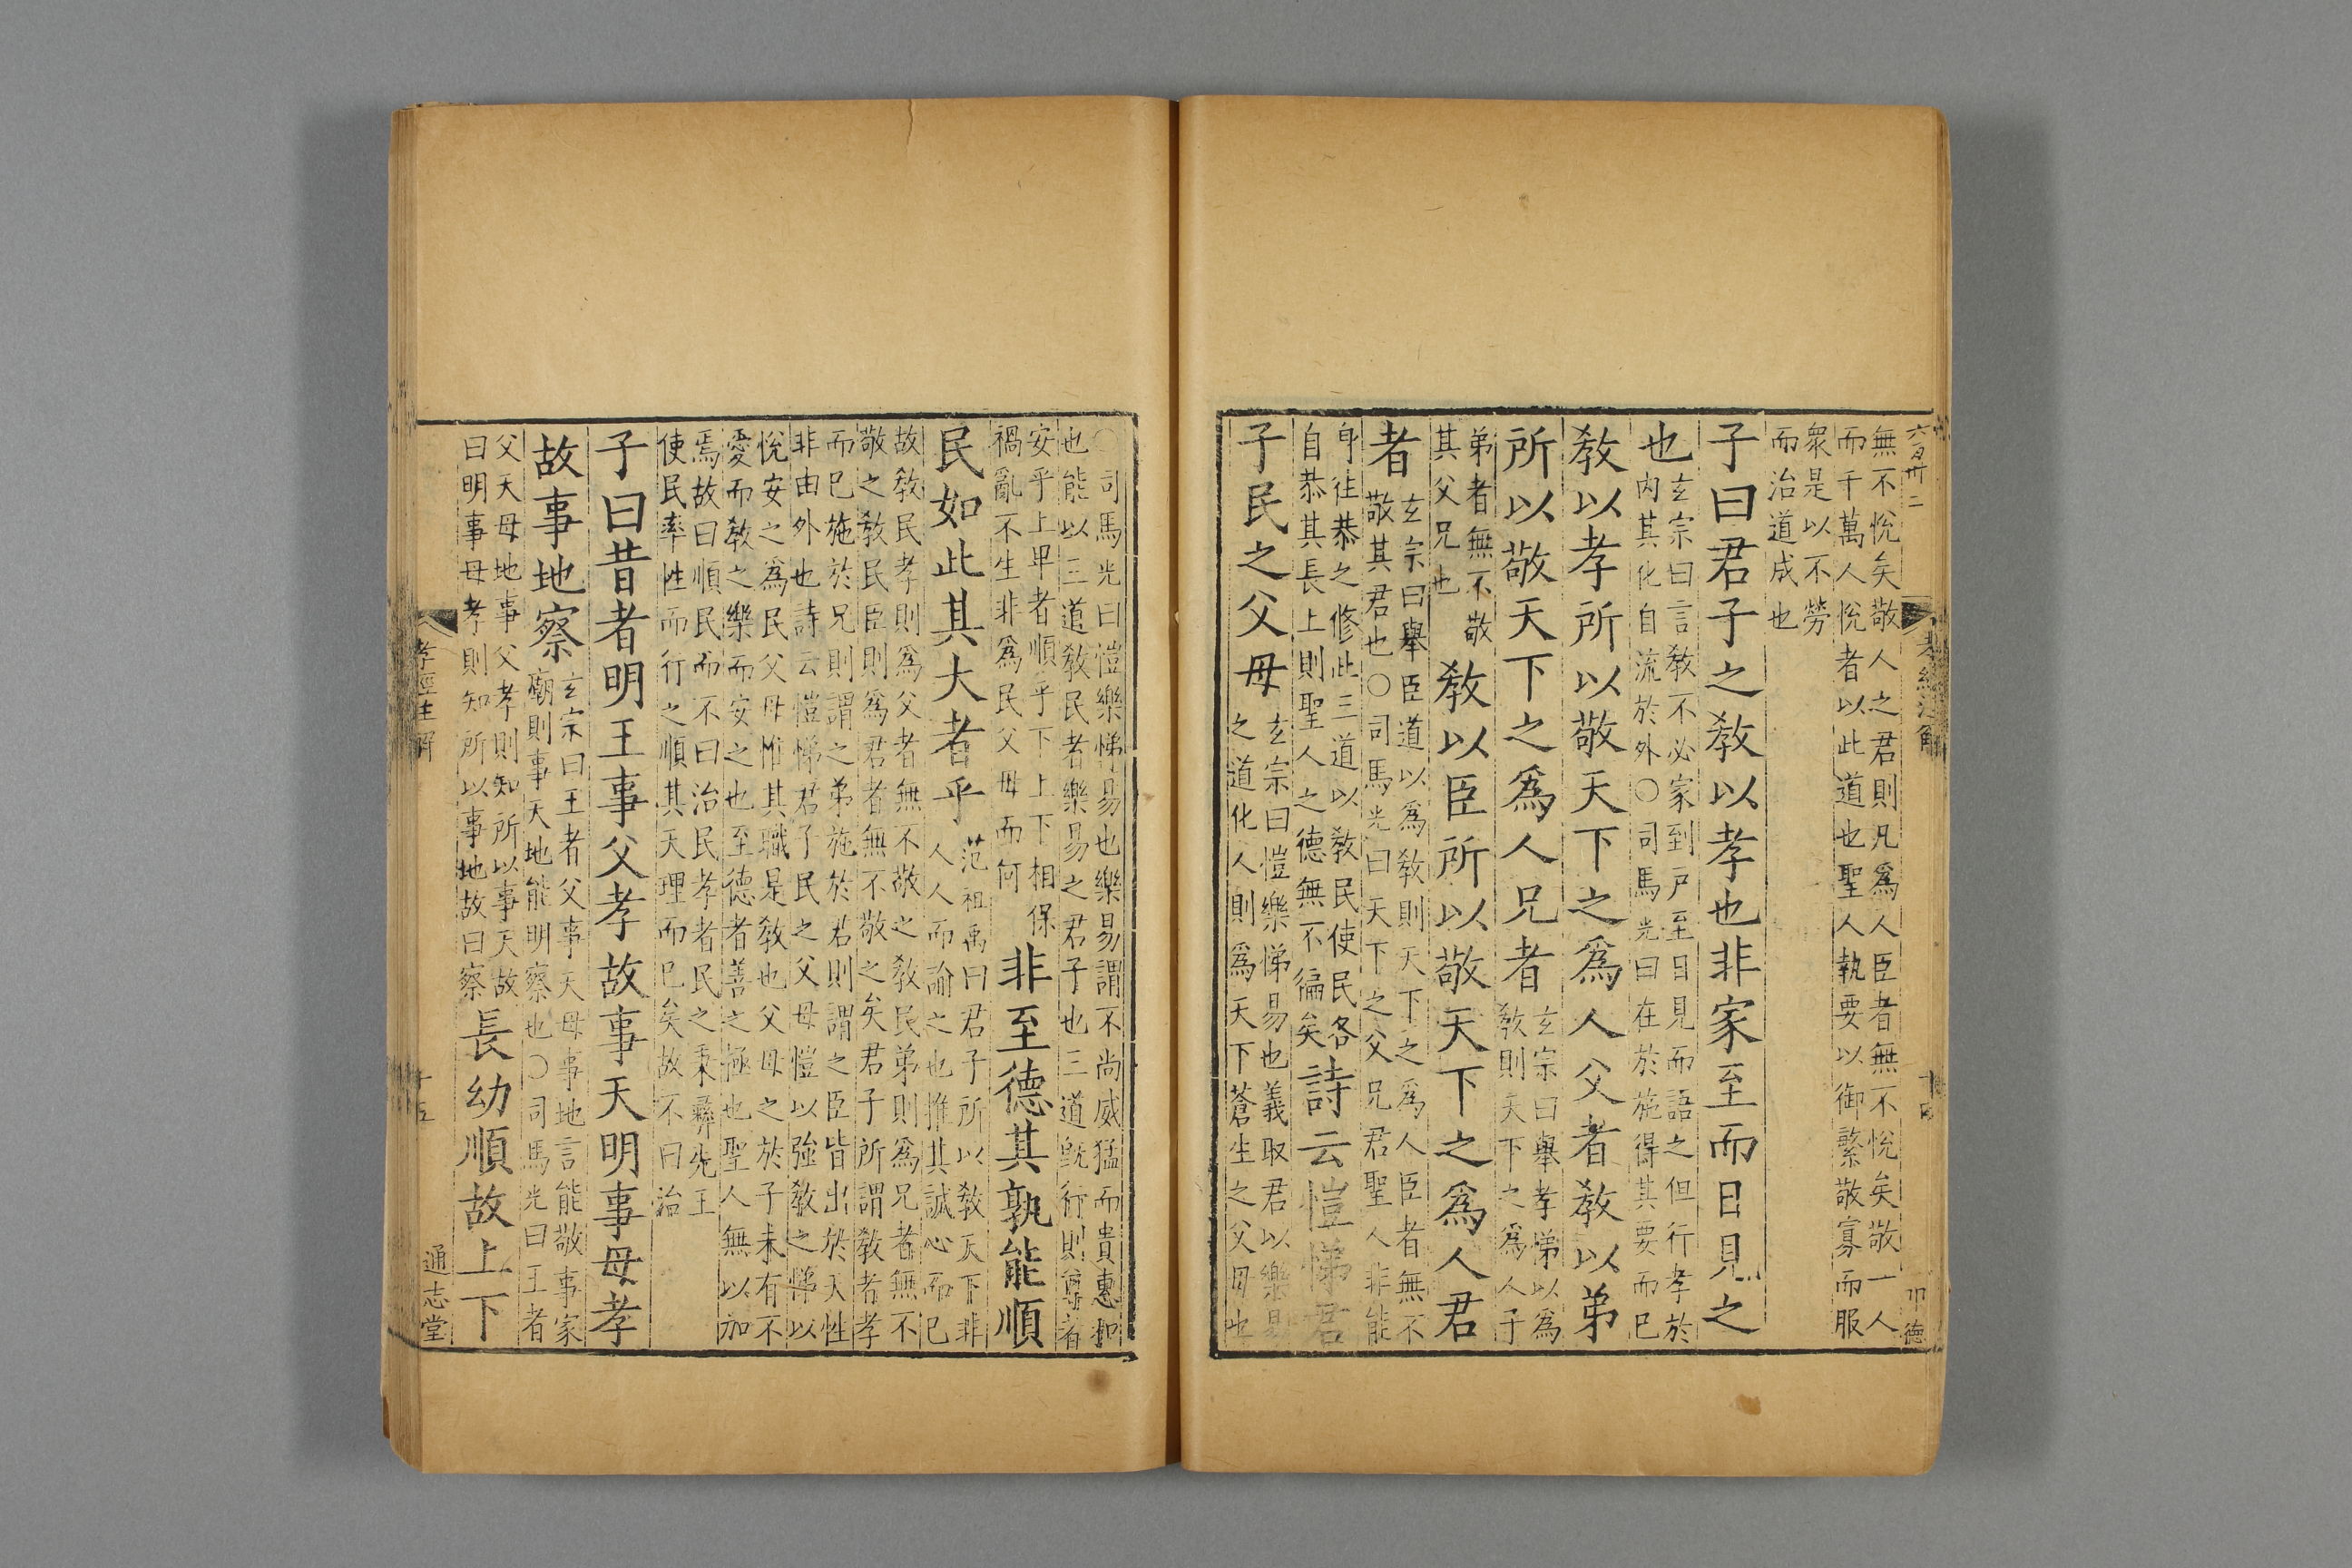 無不悅矣敬人之君則凡爲人臣者無不悅矣敬一人
而千萬人悅者以此道也聖人執要以御繁敬寡而服
衆是以不勞
而治道成也
子曰君子之教以孝也非家至而日見之
也
玄宗曰言教不必家到戶至日見而語之但行孝於
內其化自流於外○司馬光曰在於施得其要而已
教以孝所以敬天下之爲人父者教以弟
所以敬天下之爲人兄者
玄宗曰舉孝悌以爲
教則天下之爲人子
弟者無不敬
其父兄也
教以臣所以敬天下之爲人君
者
玄宗曰舉臣道以爲教則天下之爲人臣者無不
敬其君也○司馬光曰天下之父兄君聖人非能
身往恭之修此三道以教民使民各
自恭其長上則聖人之德無不徧矣
詩云愷悌君
子民之父母
玄宗曰愷樂悌易也義取君以樂易
之道化人則爲天下蒼生之父母也
○司馬光曰愷樂悌易也樂易謂不尚威猛而貴惠和
也能以三道教民者樂易之君子也三道旣行則尊者
安乎上卑者順乎下上下相保
禍亂不生非爲民父母而何
非至德其孰能順
民如此其大者乎
范祖禹曰君子所以教天下非
人人而諭之也推其誠心而已
故教民孝則爲父者無不敬之教民弟則爲兄者無不
敬之教民臣則爲君者無不敬之矣君子所謂教者孝
而已施於兄則謂之弟施於君則謂之臣皆出於天性
非由外也詩云愷悌君子民之父母愷以強教之悌以
悅安之爲民父母惟其職是教也父母之於子未有不
愛而教之樂而安之也至德者善之極也聖人無以加
焉故曰順民而不曰治民孝者民之秉彝先王
使民率性而行之順其天理而已矣故不曰治
子曰昔者明王事父孝故事天明事母孝
故事地察
玄宗曰王者父事天母事地言能敬事家
廟則事天地能明察也○司馬光曰王者
父天母地事父孝則知所以事天故
曰明事母孝則知所以事地故曰察
長幼順故上下
孝經注解
十五
通志堂